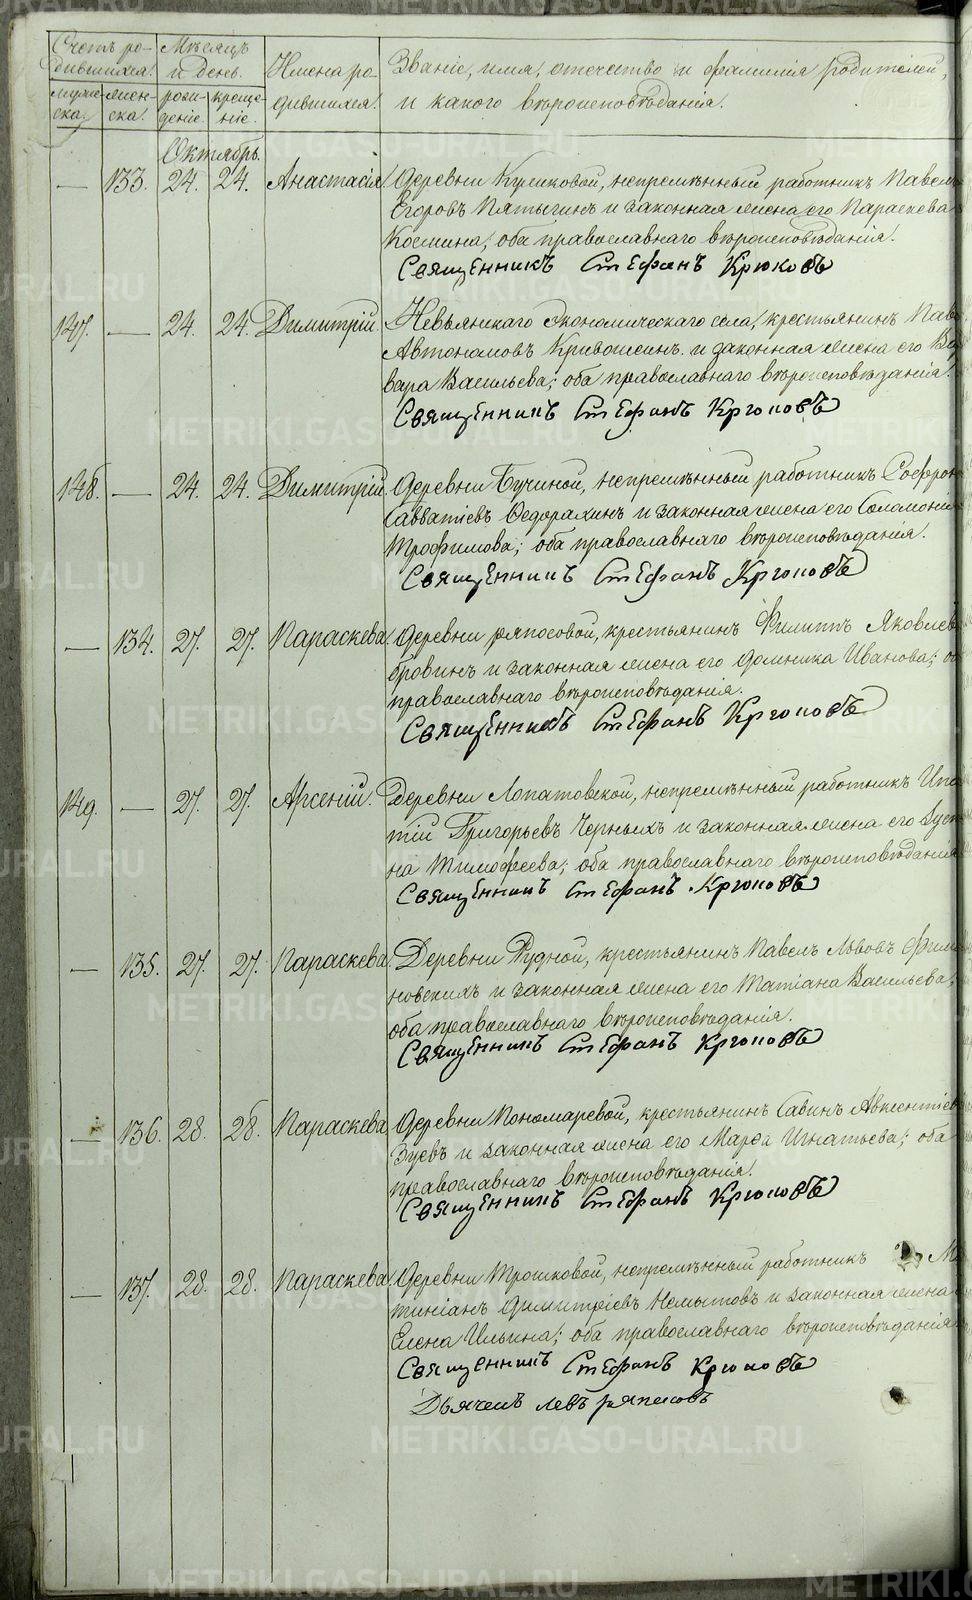 Счетъ ро-
дившихся.
Мѣсяцъ
и день.
Имена ро-
дившихся.
Званіе, имя, отечество и фамилія родителей,
и какого вѣроисповѣданія.
муже-
ска.
жен-
ска.
рож-
деніе.
креще-
ніе.
Октябрь.
— 133. 24. 24. Анастасія Деревни Куликовой, непремѣнный работникъ Павелъ
Егоровъ Пятыгинъ и законная жена его Параскева
Космина, оба православнаго вѣроисповѣданія.
Священникъ Стефанъ Крюковъ
147. — 24. 24. Димитрій. Невьянскаго Экономическаго села, крестьянинъ Паве
Автономовъ Кривошеинъ и законная жена его Вар
вара Васильева; оба православнаго вѣроисповѣданія.
Священникъ Стефанъ Крюковъ
148. — 24. 24. Димитрій. Деревни Бучиной, непремѣнный работникъ Софрон
Савватіевъ Ѳедорахинъ и законная жена его Соломонія
Трофимова; оба православнаго вѣроисповѣданія.
Священникъ Стефанъ Крюковъ
— 134. 27. 27. Параскева. Деревни Ряпосовой, крестьянинъ Филиппъ Яковлев
бровинъ и законная жена его Домника Иванова; о
православнаго вѣроисповѣданія.
Священникъ Стефанъ Крюковъ
149. — 27. 27. Арсеній. Деревни Лопатовской, непремѣнный работникъ Ипа
тій Григорьевъ Черныхъ и законная жена его
на Тимофеева; оба православнаго вѣроисповѣданія
Священникъ Стефанъ Крюковъ
— 135. 27. 27. Параскева. Деревни Рудной, крестьянинъ Павелъ Львовъ Фили
новскихъ и законная жена его Татіана Васильева;
оба православнаго вѣроисповѣданія.
Священникъ Стефанъ Крюковъ
— 136. 28. 28. Параскева Деревни Пономаревой, крестьянинъ Савинъ Авксентіев
Зуевъ и законная жена его Марѳа Игнатьева; оба
православнаго вѣроисповѣданія.
Священникъ Стефанъ Крюковъ
— 137. 28. 28. Параскева Деревни Трошковой, непремѣнный работникъ Ма
тиніанъ Димитріевъ Немытовъ и законная жена
Елена Ильина; оба православнаго вѣроисповѣданія
Священникъ Стефанъ Крюковъ
Дьячекъ Левъ Ряпосовъ
METRIKI.GASO-URAL.RU